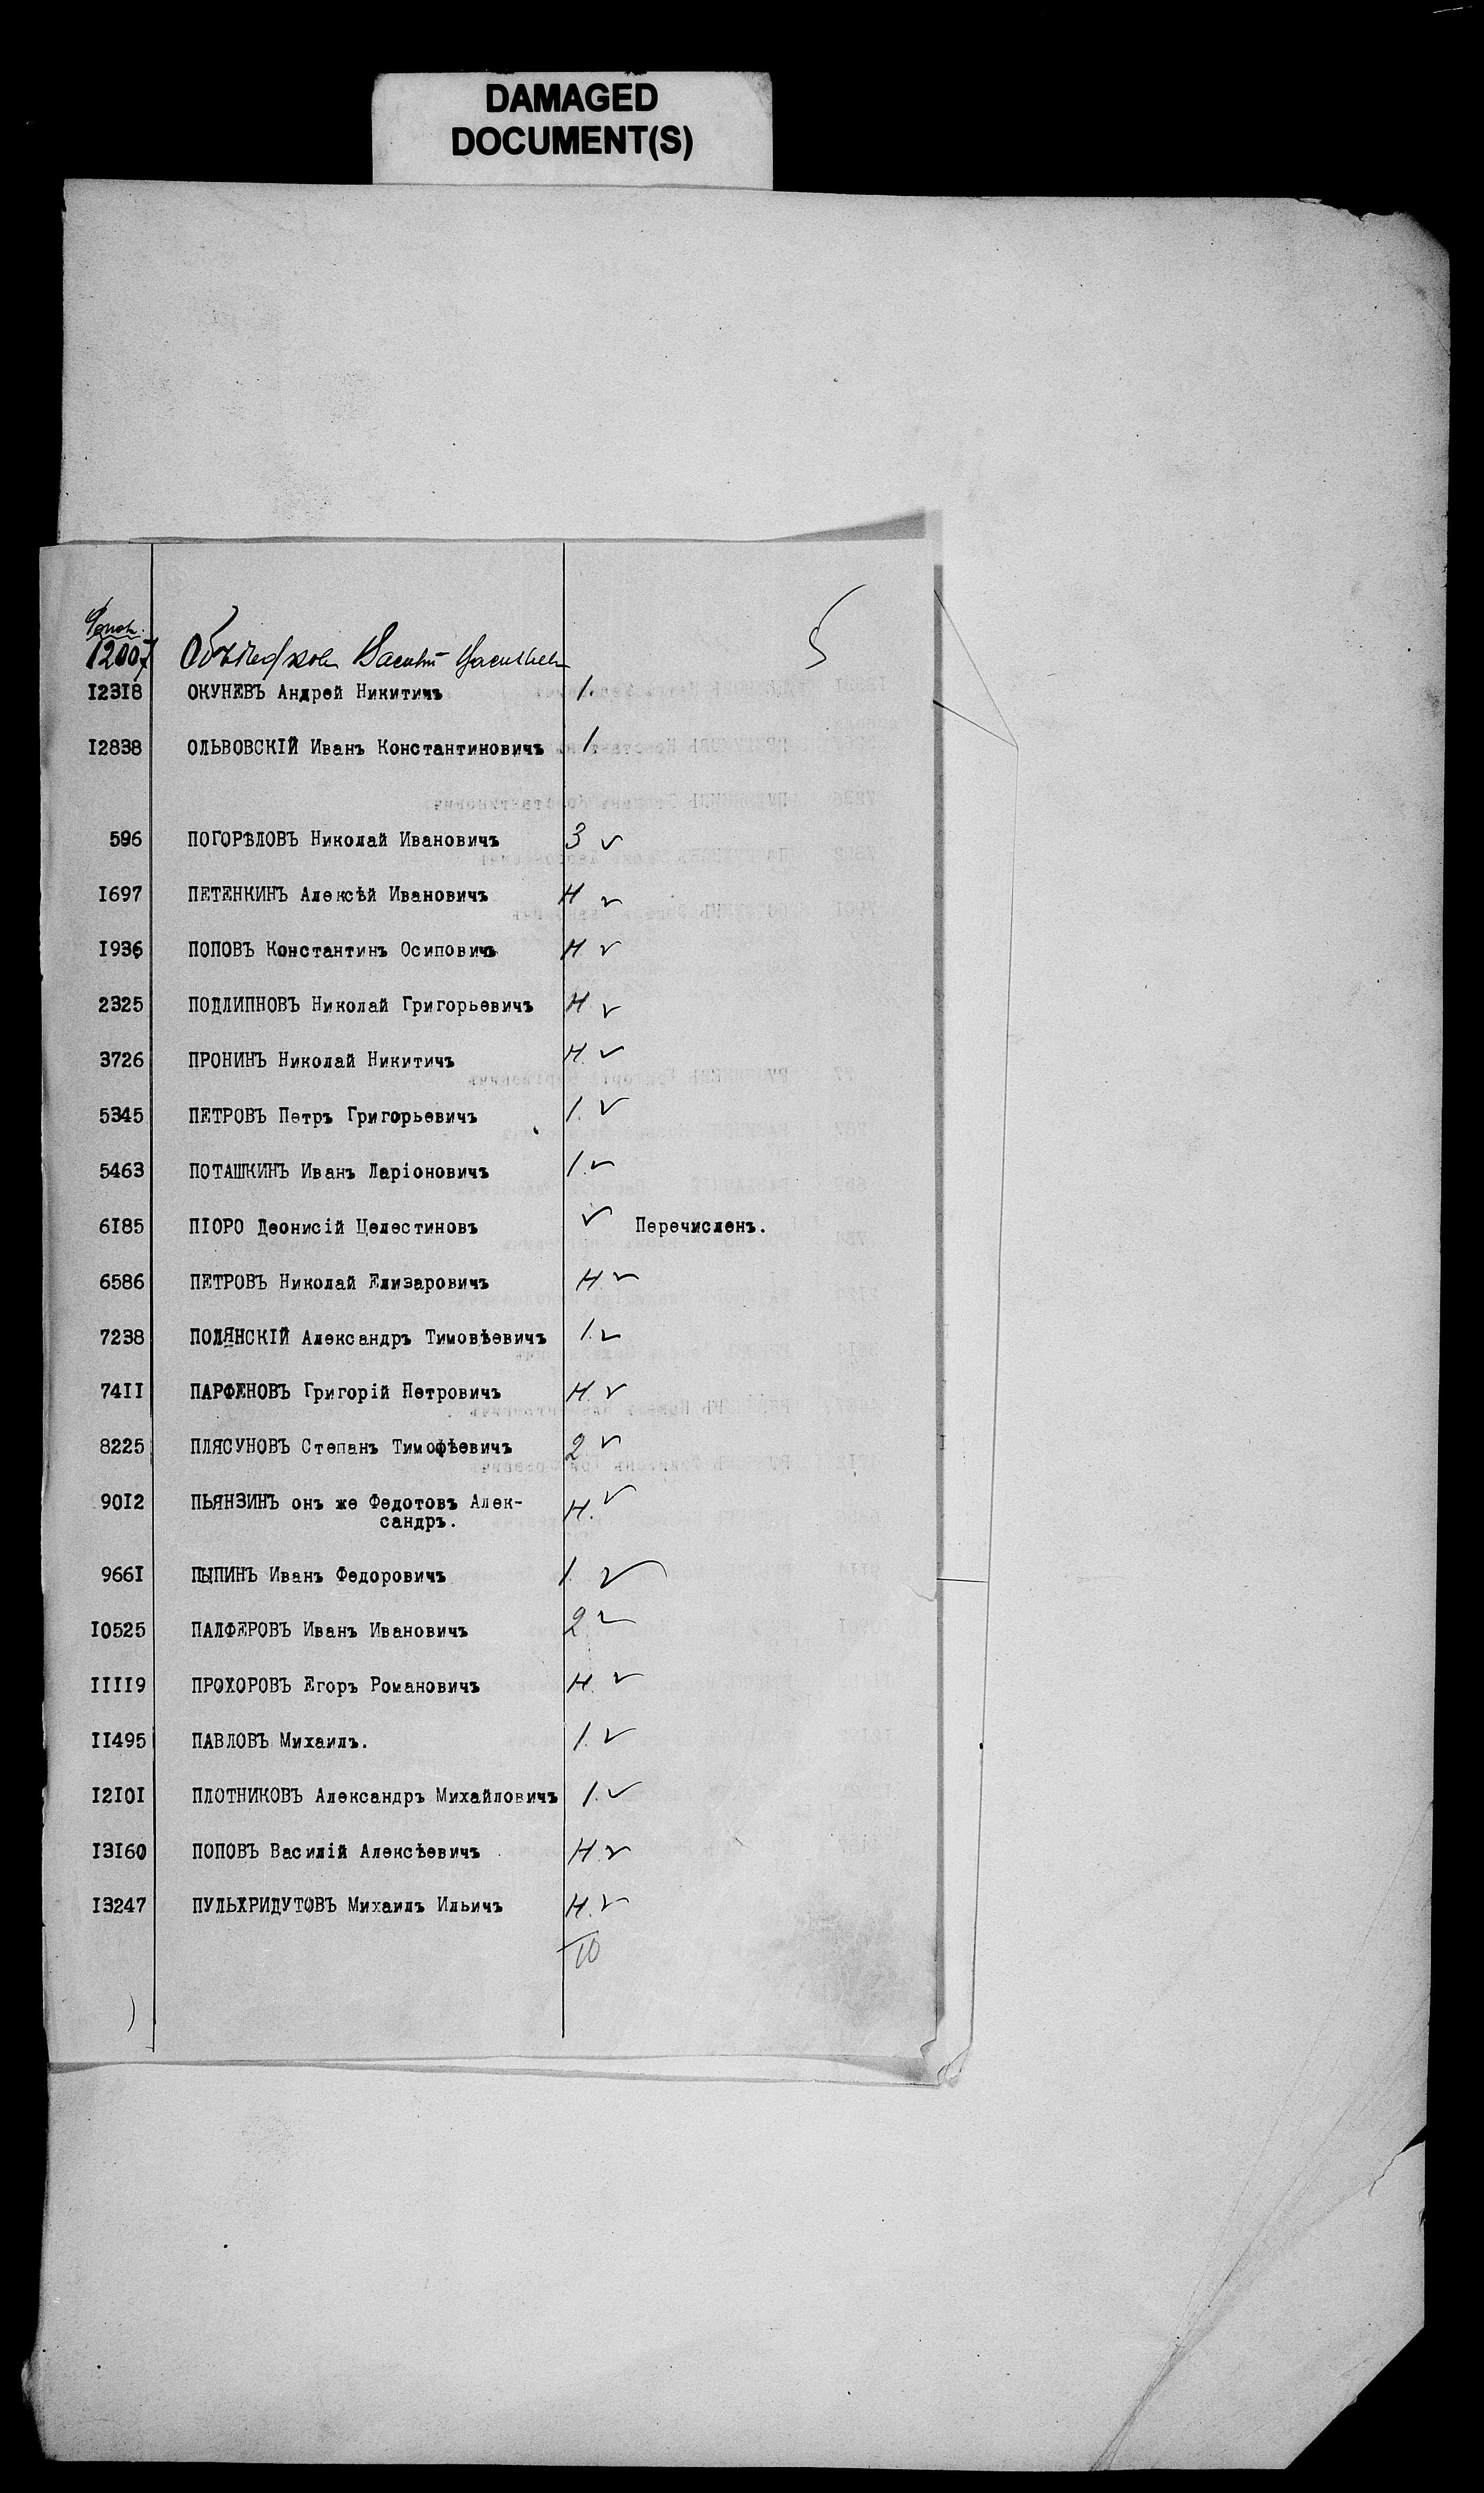 DAMAGED
DOCUMENT(S)
5
12007 Василій Васильев
I23I8 ОКУНЕВЪ Андрей Никитичъ 1.
I2838 ОЛЬВОВСКІЙ Иванъ Константиновичъ 1.
596 ПОГОРѢЛОВЪ Николай Ивановичъ 3 ✓
I697 ПЕТЕНКИНЪ Алексѣй Ивановичъ Н ✓
I936 ПОПОВЪ Константинъ Осиповичъ Н ✓
2325 ПОДЛИПНОВЪ Николай Григорьевичъ Н ✓
3726 ПРОНИНЪ Николай Никитичъ Н. ✓
5345 ПЕТРОВЪ Петръ Григорьевичъ 1. ✓
5463 ПОТАШКИНЪ Иванъ Ларіоновичъ 1. ✓
6I85 ПІОРО Деонисій Целестиновъ ✓ Перечисленъ.
6586 ПЕТРОВЪ Николай Елизаровичъ Н. ✓
7238 ПОЛЯНСКІЙ Александръ Тимовѣевичъ 1. ✓
74II ПАРФЕНОВЪ Григорій Петровичъ Н. ✓
8225 ПЛЯСУНОВЪ Степанъ Тимофѣевичъ 2 ✓
90I2 ПЬЯНЗИНЪ онъ же Федотовъ Алек-
сандръ. Н. ✓
966I ПЫПИНЪ Иванъ Федоровичъ 1. ✓
I0525 ПАЛФЕРОВЪ Иванъ Ивановичъ 2 ✓
IIII9 ПРОХОРОВЪ Егоръ Романовичъ Н. ✓
II495 ПАВЛОВЪ Михаилъ. 1. ✓
I2I0I ПЛОТНИКОВЪ Александръ Михайловичъ 1. ✓
I3I60 ПОПОВЪ Василій Алексѣевичъ Н. ✓
I3247 ПУЛЬХРИДУТОВЪ Михаилъ Ильичъ Н. ✓
10